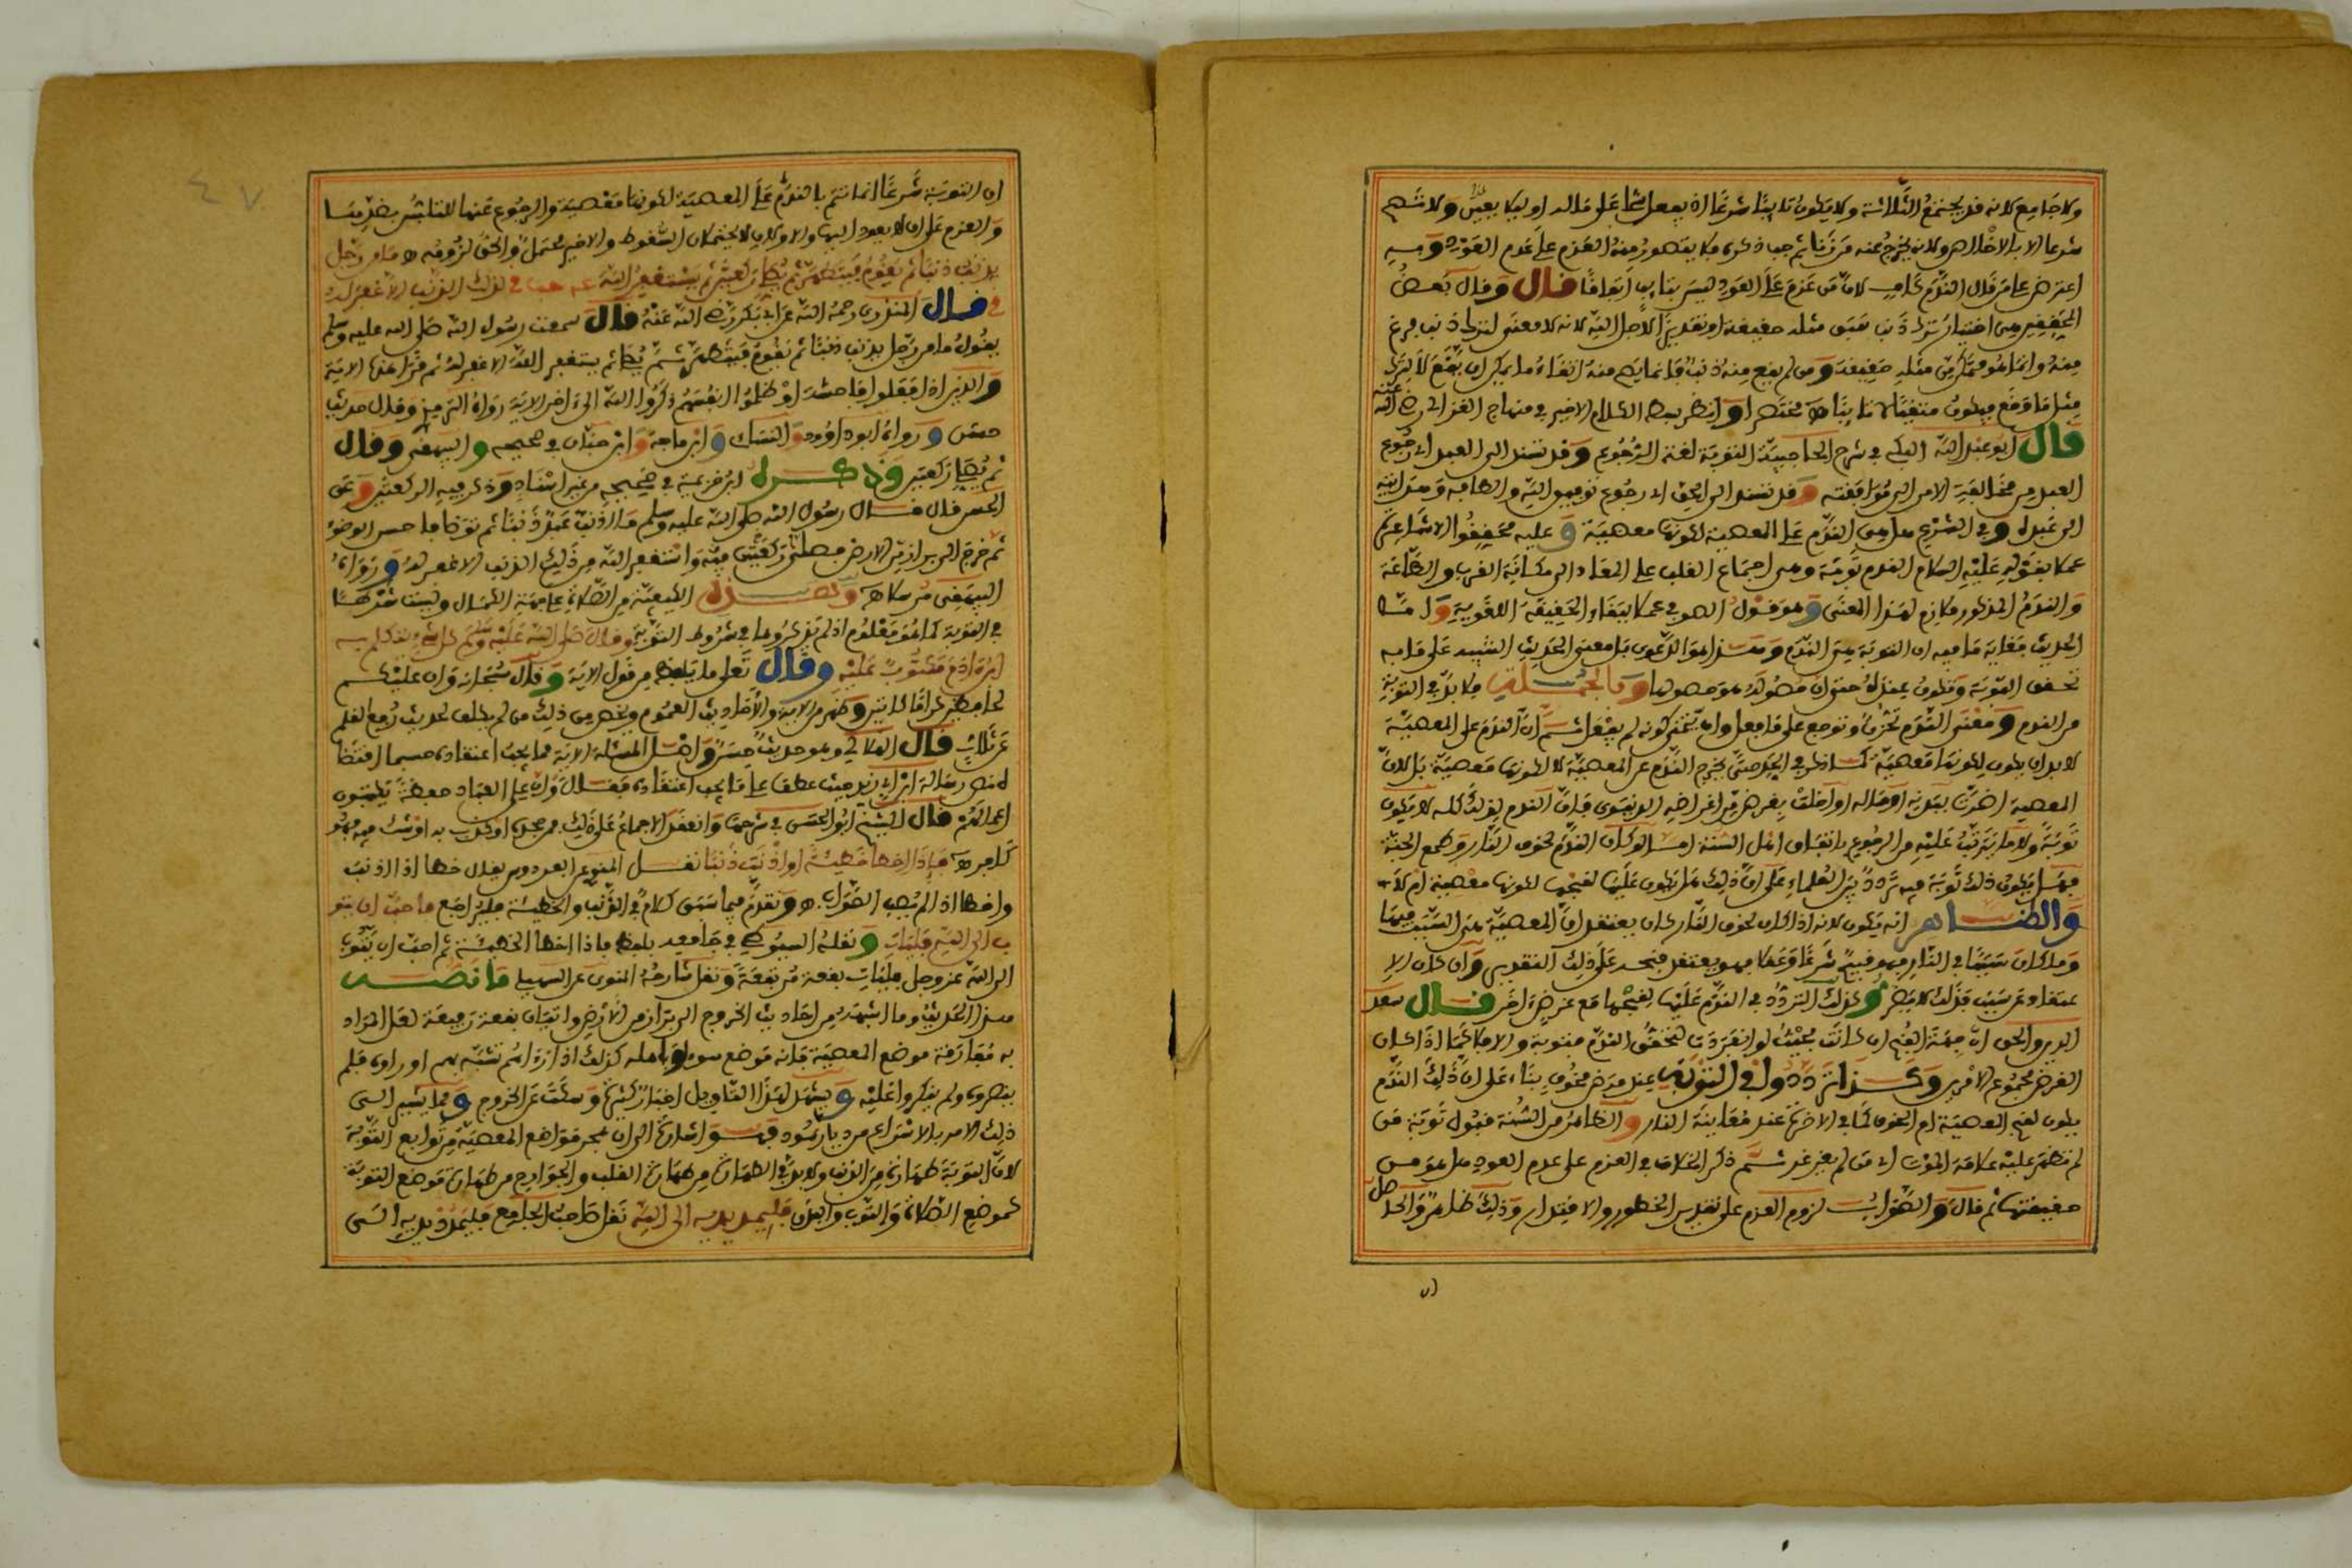 ولا جامع لانه قد يجتمع الثلاثة ولا يكون تايبا شرعا اذا لم يفعل شيئا على ولا شهم
شرعا الا بالاخلاص ولانه يخرج عنه من زنا ثم جب ذكره فلا يتصور منه العزم على عدم العود
اعترض على من قال الندم كاف لان من عزم على العود ليس بتايب اتفاقا قال وقال بعض
المحققين هي اختيار ترك ذنب سبق مثله حقيقة او تقديرا لاجل الله لانه لا معنى لترك ذنب فرغ
منه وانما هو متمكن من مثله حقيقة ومن لم يقع منه ذنب فانما يصح منه اتقاء ما يمكن ان يقع لا ترك
مثل ما وقع فيكون متقيا لا تايبا ه مختصرا وانظر بسط الكلام الاخير في منهاج الغزالي رضي الله عنه
قال ابو عبد الله البكي في شرح الحاجبية التوبة لغة الرجوع وقد تسند الى العبد اي رجوع
العبد من مخالفة الامر الى موافقته وقد تسند الى الحق اي رجوع نوره والطافه
الى عبده وفي الشرع هي الندم على المعصية لكونها معصية وعليه محققوا الاشاعرة
عملا بقوله عليه السلام الندم توبة وهي اجتماع القلب على المعاد الى مكانة القرب والطاعة
والندم المذكور ملازم لهذا المعنى وهو قول الصوفي عملا ببقاء الحقيقة اللغوية واما
الحديث فغاية ما فيه ان التوبة هي الندم وهذا هو الدعوى بل معنى الحديث التنبيه على ما به
تحقق التوبة وتكون بمنزلة حتى ان حصوله هو حصولها وبالجملة فلا بد في التوبة
من الندم ومعنى الندم تحزن وتوجع على ما فعل وان يتمنى كونه لم يفعل ثم ان الندم على المعصية
لا بد ان يكون لكونها معصية كما ذكر في الحد حتى يخرج الندم عن المعصية لا لكونها معصية بل لان
المعصية اضرت ببدنه او ماله او اخلت بغرض من اغراضه الدنيوي فان الندم لذلك كله لا يكون
توبة ولا ما يترتب عليه من الرجوع باتفاق اهل السنة اما لو كان الندم لخوف النار وطمع الجنة
فهل يكون ذلك توبة فيه تردد بين العلماء على ان ذلك هل يكون عليها لقبحها لكونها معصية ام لا
والظاهر انه يكون لانه اذا كان لخوف النار كان يعتقد ان المعصية هي السبب فيها
وما كان سببا في النار فهو قبيح شرعا وعقلا فهو يعتقد قبحه على ذلك التقدير وان كان الا
عتقاد عن سبب فذلك لا يضر وكذلك التردد في الندم عليها لقبحها مع غرض اخر قال سعد
الدين والحق ان جهة القبح ان كانت بحيث لو انفردت لتحقق الندم فتوبة والا فلا كما اذا كان
الغرض مجموع الامرين وكذا ترددوا في التوبة عند مرض مخوف بناء على ان ذلك الندم
يكون لقبح المعصية ام لخوف كما في الاخرة عند معاينة النار والظاهر من السنة قبول توبة من
لم تظهر عليه علامة الموت اي من لم يغرغر ثم ذكر الخلاف في العزم على عدم العود هل هو من
حقيقتها ثم قال والصواب لزوم العزم على تقدير الخطور والاقتدار وذلك ظاهر والحاصل
ان التوبة شرعا انما تتم بالندم على المعصية لكونها معصية والرجوع عنها للتلبس بضدها
والعزم على ان لا يعود اليها والاولان لا يحتملان السقوط والاخير محتمل والحق لزومه ه ما من رجل
يذنب ذنبا ثم يقوم فيتطهر ثم يصلي ركعتين ثم يستغفر الله لذلك الذنب الا غفر له
قال المنذري رحمه الله عن ابي بكر رضي الله عنه قال سمعت رسول الله صلى الله عليه وسلم
يقول ما من رجل يذنب ذنبا ثم يقوم فيتطهر ثم يصلي ثم يستغفر الله الا غفر له ثم قرأ هذه الاية
والذين اذا فعلوا فاحشة او ظلموا انفسهم ذكروا الله الى اخر الاية رواه الترمذي وقال حديث
حسن ورواه ابو داوود والنساي وابن ماجة وابن حبان في صحيحه والبيهقي وقال
ثم يصلي ركعتين وذكره ابن خزيمة في صحيحه بغير اسناد وذكر فيه الركعتين وعن
الحسن قال قال رسول الله صلى الله عليه وسلم ما اذنب عبد ذنبا ثم توضا فاحسن الوضوء
ثم خرج الى براز من الارض فصلى ركعتين فيه واستغفر الله من ذلك الذنب الا غفر له ورواه
البيهقي مرسلا ه الكيفية من الصلاة على جهة الكمال وليست شرطا
في التوبة كما هو معلوم اذ لم يذكروها في شروط التوبة وقال صلى الله عليه وسلم كل شيء يتكلم به
ابن ادم مكتوب عليه وقال تعلى ما يلفظ من قول الاية وقال سبحانه وان عليكم
لحافظين كراما كاتبين وظهر من الاية والاحاديث العموم ويخص من ذلك من لم يكلف لحديث رفع القلم
عن ثلاث قال وهو حديث حسن واصل المسئلة الاية مما يجب اعتقاده حسبما اقتضا
ه نص رسالة ابن ابي زيد حيث عطف على ما يجب اعتقاده فقال وان على العباد حفظة يكتبون
اعمالهم قال الشيخ ابو الحسن في شرحها وانعقد الاجماع على ذلك فمن جحده او كذب به او شك فيه فهو
كافر ه فاذا اخطا خطيئة او اذنب ذنبا نقل المنوي عن الفردوس يقال خطا اذا اذنب
واخطا اذا لم يصب الصواب ه وتقدم فيما سبق كلام في الذنب والخطيئة فليراجع فاحب ان يتو
ب الى الله فليات ونقله السيوطي في جامعه بلفظ فاذا اخطا الخطيئة ثم احب ان يتوب
الى الله عز وجل فليات بقعة مرتفعة ونقل شارحه المنوي عن السهيلي ما نصه
هذا الحديث وما اشبهه من احاديث الخروج الى براز من الارض واتيان بقعة رفيعة لعل المراد
به مفارقة موضع المعصية فانه موضع سوء واهله كذلك اذا راهم تشبه بهم او راوه فلم
ينصروه ولم ينكروا عليه ويشهد لهذا التاويل اخبار كثيرة وسكت عن الخروج ومما يشير الى
ذلك الامر بالاسراع من ديار ثمود اشارة الى ان هجر مواضع المعصية من توابع التوبة
لان التوبة طهارة من الذنب ولا بد في الطهارة من طهارة القلب والجوارح من طهارة موضع التوبة
كموضع الصلاة والثوب والبدن فليمد يديه الى الله نقل صاحب الجامع فليمدد يديه الى